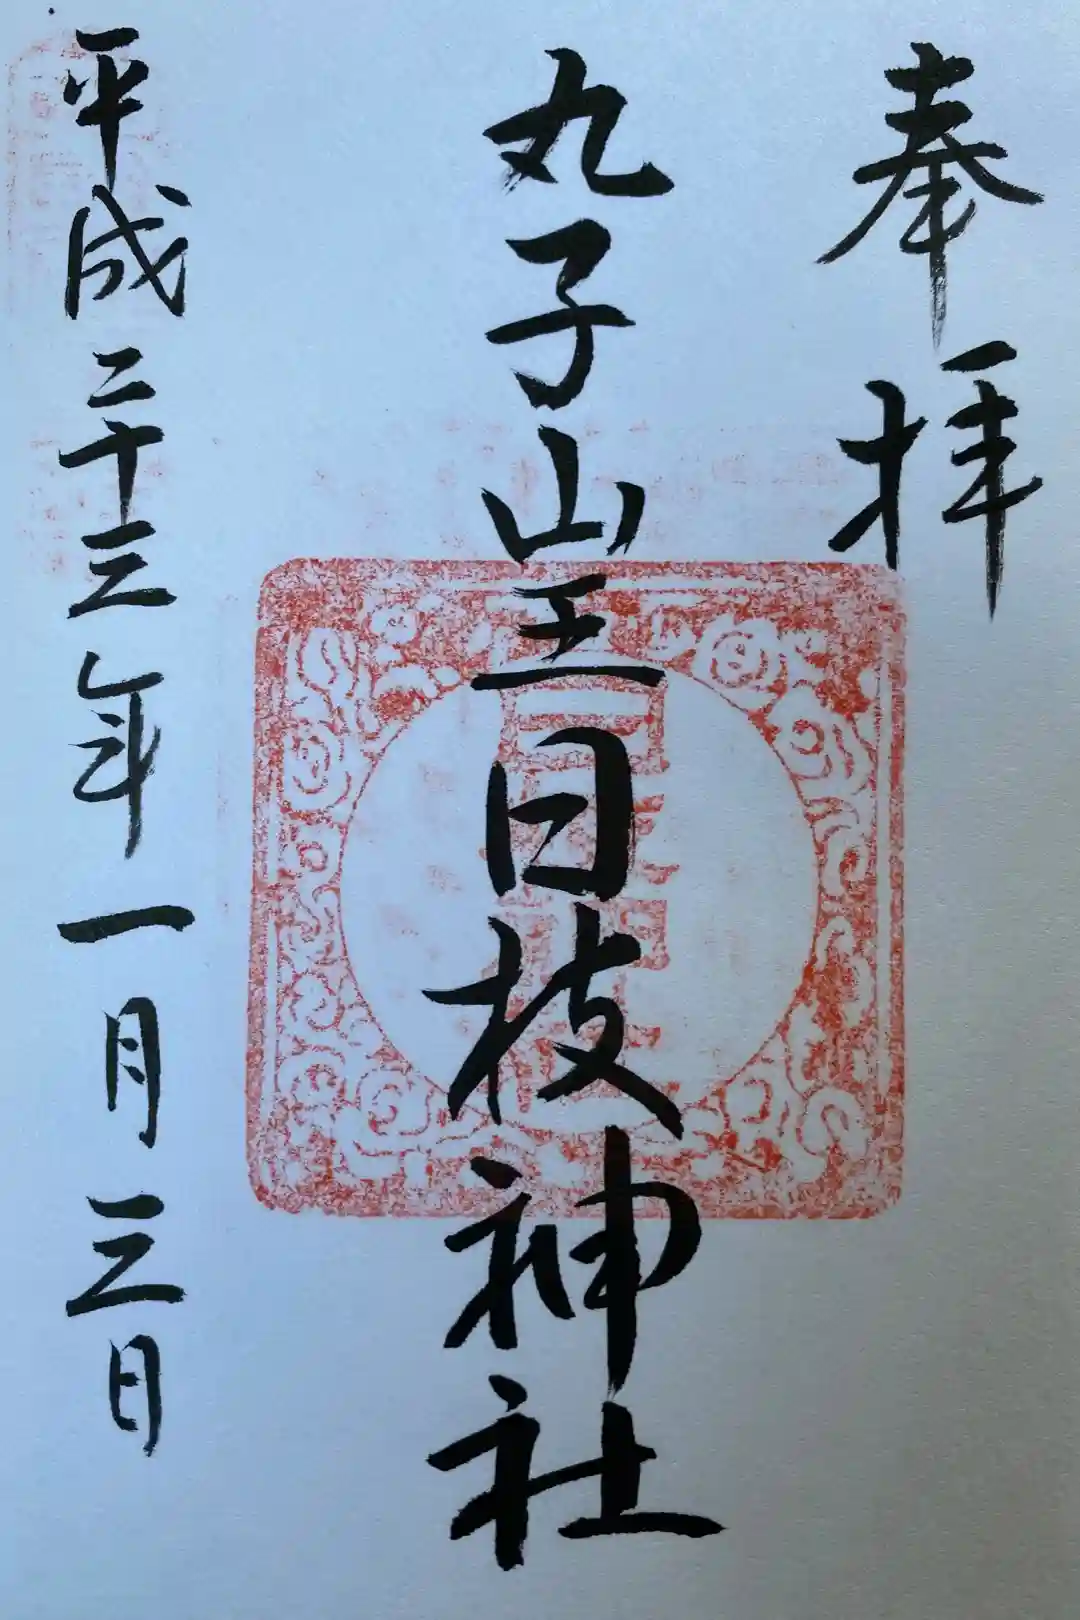 奉拝
丸子山王日枝神社
平成二十三年一月三日